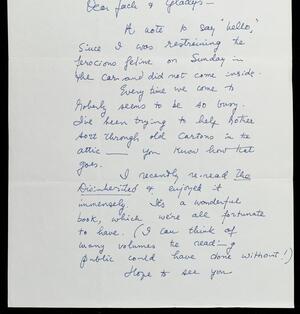 Dear Jack & Gladys —
A note to say "hello,"
Since I was restraining the
ferocious feline on Sunday in
the car and did not come inside.
Every time we come to
Moberly seems to be so busy.
I've been trying to help Mother
sort through old cartons in the
attic — you know how that
goes.
I recently re-read The
Disinherited & enjoyed it
immensely. It's a wonderful
book, which we're all fortunate
to have. (I can think of
many volumes the reading
public could have done without!)
Hope to see you